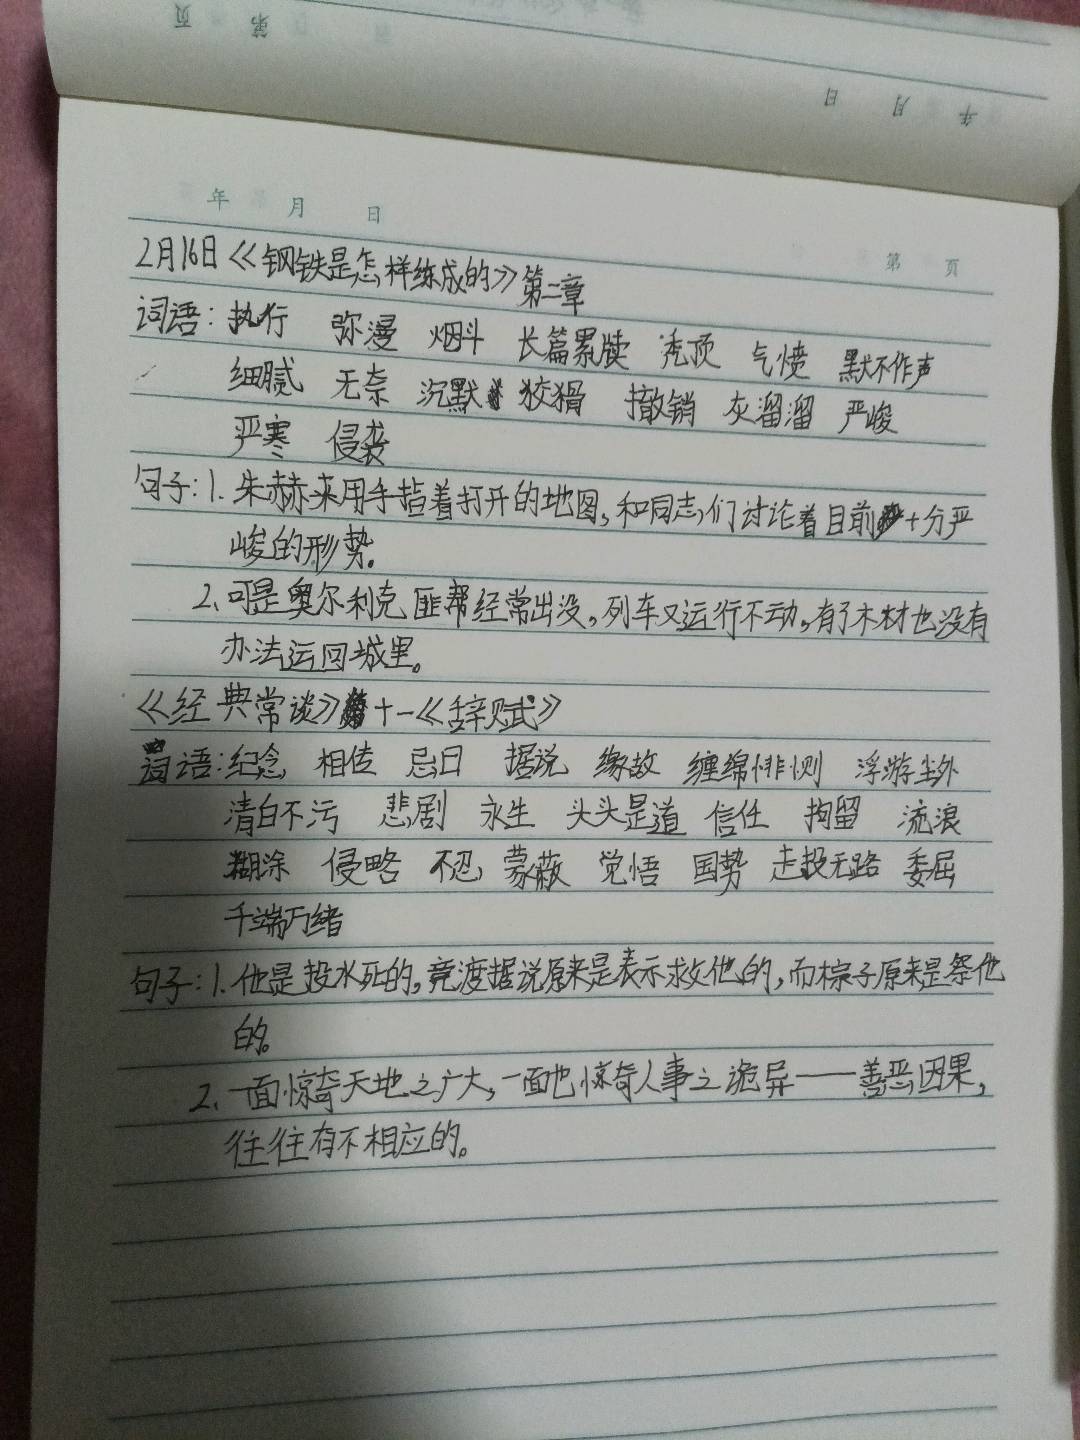 页 第
日 月 年
年 月 日
第 页
2月16日《钢铁是怎样练成的》第二章
词语:执行 弥漫 烟斗 长篇累牍 秃顶 气愤 默不作声
细腻 无奈 沉默 狡猾 撤销 灰溜溜 严峻
严寒 侵袭
句子:1.朱赫来用手指着打开的地图,和同志们讨论着目前十分严
峻的形势.
2.可是奥尔利克匪帮经常出没,列车又运行不动,有了木材也没有
办法运回城里。
《经典常谈》十一《辞赋》
词语:纪念 相传 忌日 据说 缘故 缠绵悱恻 浮游尘外
清白不污 悲剧 永生 头头是道 信任 拘留 流浪
糊涂 侵略 不忍 蒙蔽 觉悟 国势 走投无路 委屈
千端万绪
句子:1.他是投水死的,竞渡据说原来是表示救他的,而棕子原来是祭他
的。
2.一面惊奇天地之广大,一面也惊奇人事之诡异——善恶因果,
往往有不相应的。